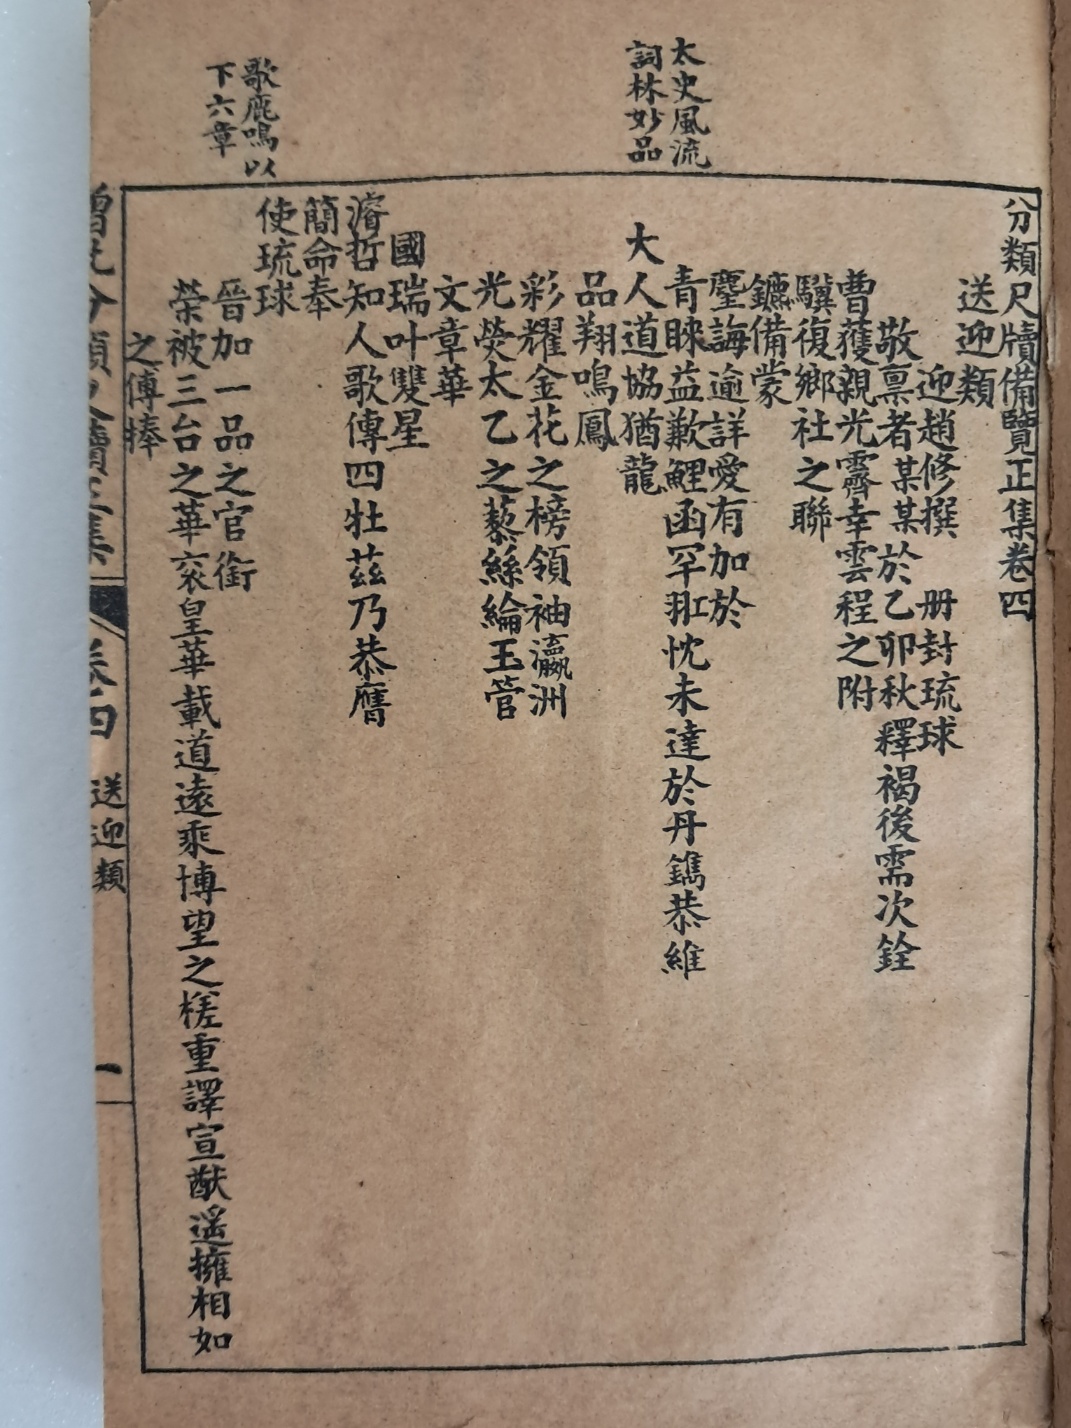 太史風流
詞林妙品
歌鹿鳴以
下六章
分類尺牘備覽正集卷四
送迎類
迎趙修撰　册封琉球
敬稟者某某於乙卯秋釋褐後需次銓
曹獲親光霽幸雲程之附
驥復鄉社之聯
鑣備蒙
麈誨逾詳愛有加於
青睞益歉鯉函罕羾忱未達於丹鐫恭維
大人道協猶龍
品翔鳴鳳
彩耀金花之榜領袖瀛洲
光熒太乙之藜絲綸玉管
文章華
國瑞叶雙星
濬哲知人歌傳四牡茲乃恭膺
簡命奉
使琉球
晉加一品之官銜
榮被三台之華衮皇華載道遠乘博望之槎重譯宣猷遥擁相如
之傳捧
分類尺牘正集
卷四
送迎類
一